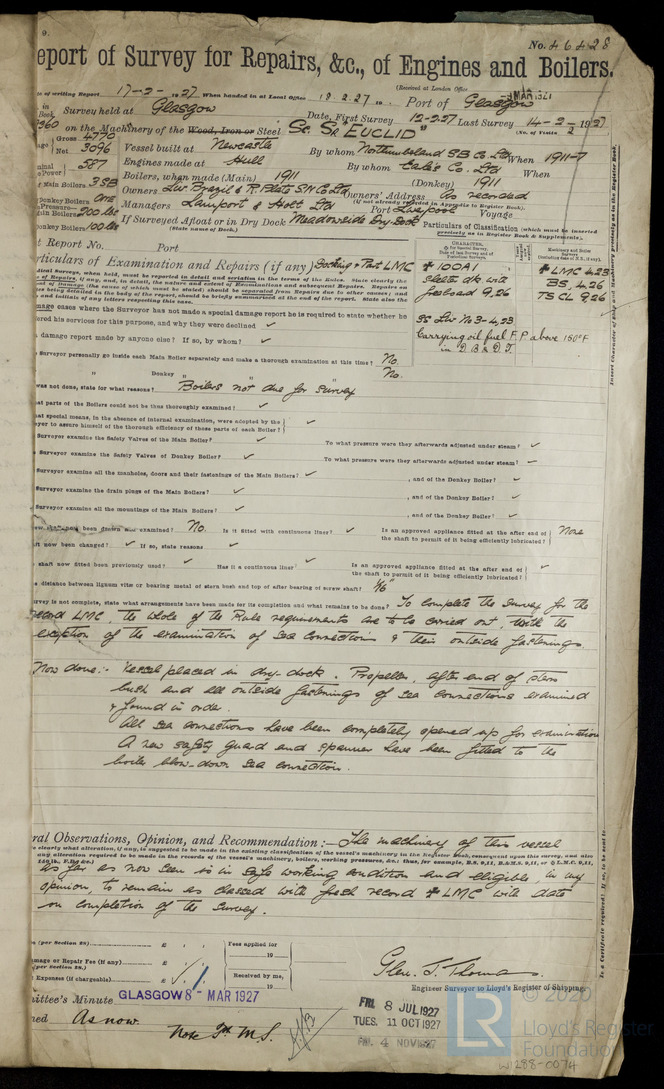 No. 46428
eport of Survey for Repairs, &c., of Engines and Boilers.
(Received at London Office MAR 1927
of writing Report 17-2-1927 When handed in at Local Office 18.2.27 Port of Glasgow
Survey held at Glasgow Date, First Survey 12-2-27 Last Survey 14-2-1927
(No. of Visits 2
on the Machinery of the Wood, Iron or Steel Sc. Sr "EUCLID"
Gross 4770
Net 3096
Vessel built at Newcastle By whom Northumberland SB Co. Ltd When 1911-7
587
Engines made at Hull By whom Earle's Co. Ltd When
Main Boilers 3SB Boilers, when made (Main) 1911 (Donkey) 1911
Donkey Boilers one Owners Liv. Brazil & R. Plate S N Co Ltd Owners' Address As recorded
(if not already recorded in Appendix to Register Book).
ain Boilers 200 lbs Managers Lamport & Holt Ltd Port Liverpool Voyage
onkey Boilers 100 lbs If Surveyed Afloat or in Dry Dock Meadowside Dry Dock
(State name of Dock.)
Particulars of Classification (which must be inserted precisely as in Register Book & Supplements).
t Report No. Port
rticulars of Examination and Repairs (if any) Docking & Part LMC
100A1
shelter dk with
freeboard 9,26
SS Liv No 3-4,23
Carrying oil fuel F.P above 150°F
in D B & D.T.
LMC 4.23
BS, 4.26
TS CL 9.26
mage cases where the Surveyor has not made a special damage report he is required to state whether he
ered his services for this purpose, and why they were declined ✓
damage report made by anyone else? If so, by whom? ✓
Surveyor personally go inside each Main Boiler separately and make a thorough examination at this time? No.
" Donkey " " " No.
was not done, state for what reasons? Boilers not due for survey
at parts of the Boilers could not be thoroughly examined? ✓
at special means, in the absence of internal examination, were adopted by the
yor to assure himself of the thorough efficiency of those parts of each Boiler? ✓
Surveyor examine the Safety Valves of the Main Boiler? ✓ To what pressure were they afterwards adjusted under steam? ✓
Surveyor examine the Safety Valves of Donkey Boiler? ✓ To what pressure were they afterwards adjusted under steam? ✓
Surveyor examine all the manholes, doors and their fastenings of the Main Boilers? ✓ , and of the Donkey Boiler? ✓
Surveyor examine the drain plugs of the Main Boilers? ✓ , and of the Donkey Boiler? ✓
Surveyor examine all the mountings of the Main Boilers? ✓ , and of the Donkey Boiler? ✓
ew shaft now been drawn and examined? No. Is it fitted with continuous liner? ✓ Is an approved appliance fitted at the after end of
the shaft to permit of it being efficiently lubricated? None
ft now been changed? ✓ If so, state reasons ✓
shaft now fitted been previously used? ✓ Has it a continuous liner? ✓ Is an approved appliance fitted at the after end of
the shaft to permit of it being efficiently lubricated? ✓
e distance between lignum vitæ or bearing metal of stern bush and top of after bearing of screw shaft? 1/16"
urvey is not complete, state what arrangements have been made for its completion and what remains to be done? To complete the survey for the
record LMC, the whole of the Rule requirements are to be carried out, with the
exception of the examination of sea connections & their outside fastenings.
Now done:- Vessel placed in dry-dock. Propeller, after end of stern
bush and all outside fastenings of sea connections examined
& found in order.
All sea connections have been completely opened up for examination
A new safety guard and spanner have been fitted to the
boiler blow-down sea connection.
ral Observations, Opinion, and Recommendation:- The machinery of this vessel
as far as now seen is in safe working condition and eligible in my
opinion, to remain as classed with fresh record LMC with date
on completion of the survey.
(per Section 28) £ : : Fees applied for
19
amage or Repair Fee (if any) £ : :
(per Section 28.)
Expenses (if chargeable) £ Received by me,
19
Glen. T. Thomas.
Engineer Surveyor to Lloyd's Register of Shipping.
mittee's Minute GLASGOW 8 - MAR 1927
ned As now
FRI. 8 JUL 1927
TUES. 11 OCT 1927
FRI. 4 NOV 1927
LR
© 2020
Lloyd's Register
Foundation
W1288-0074